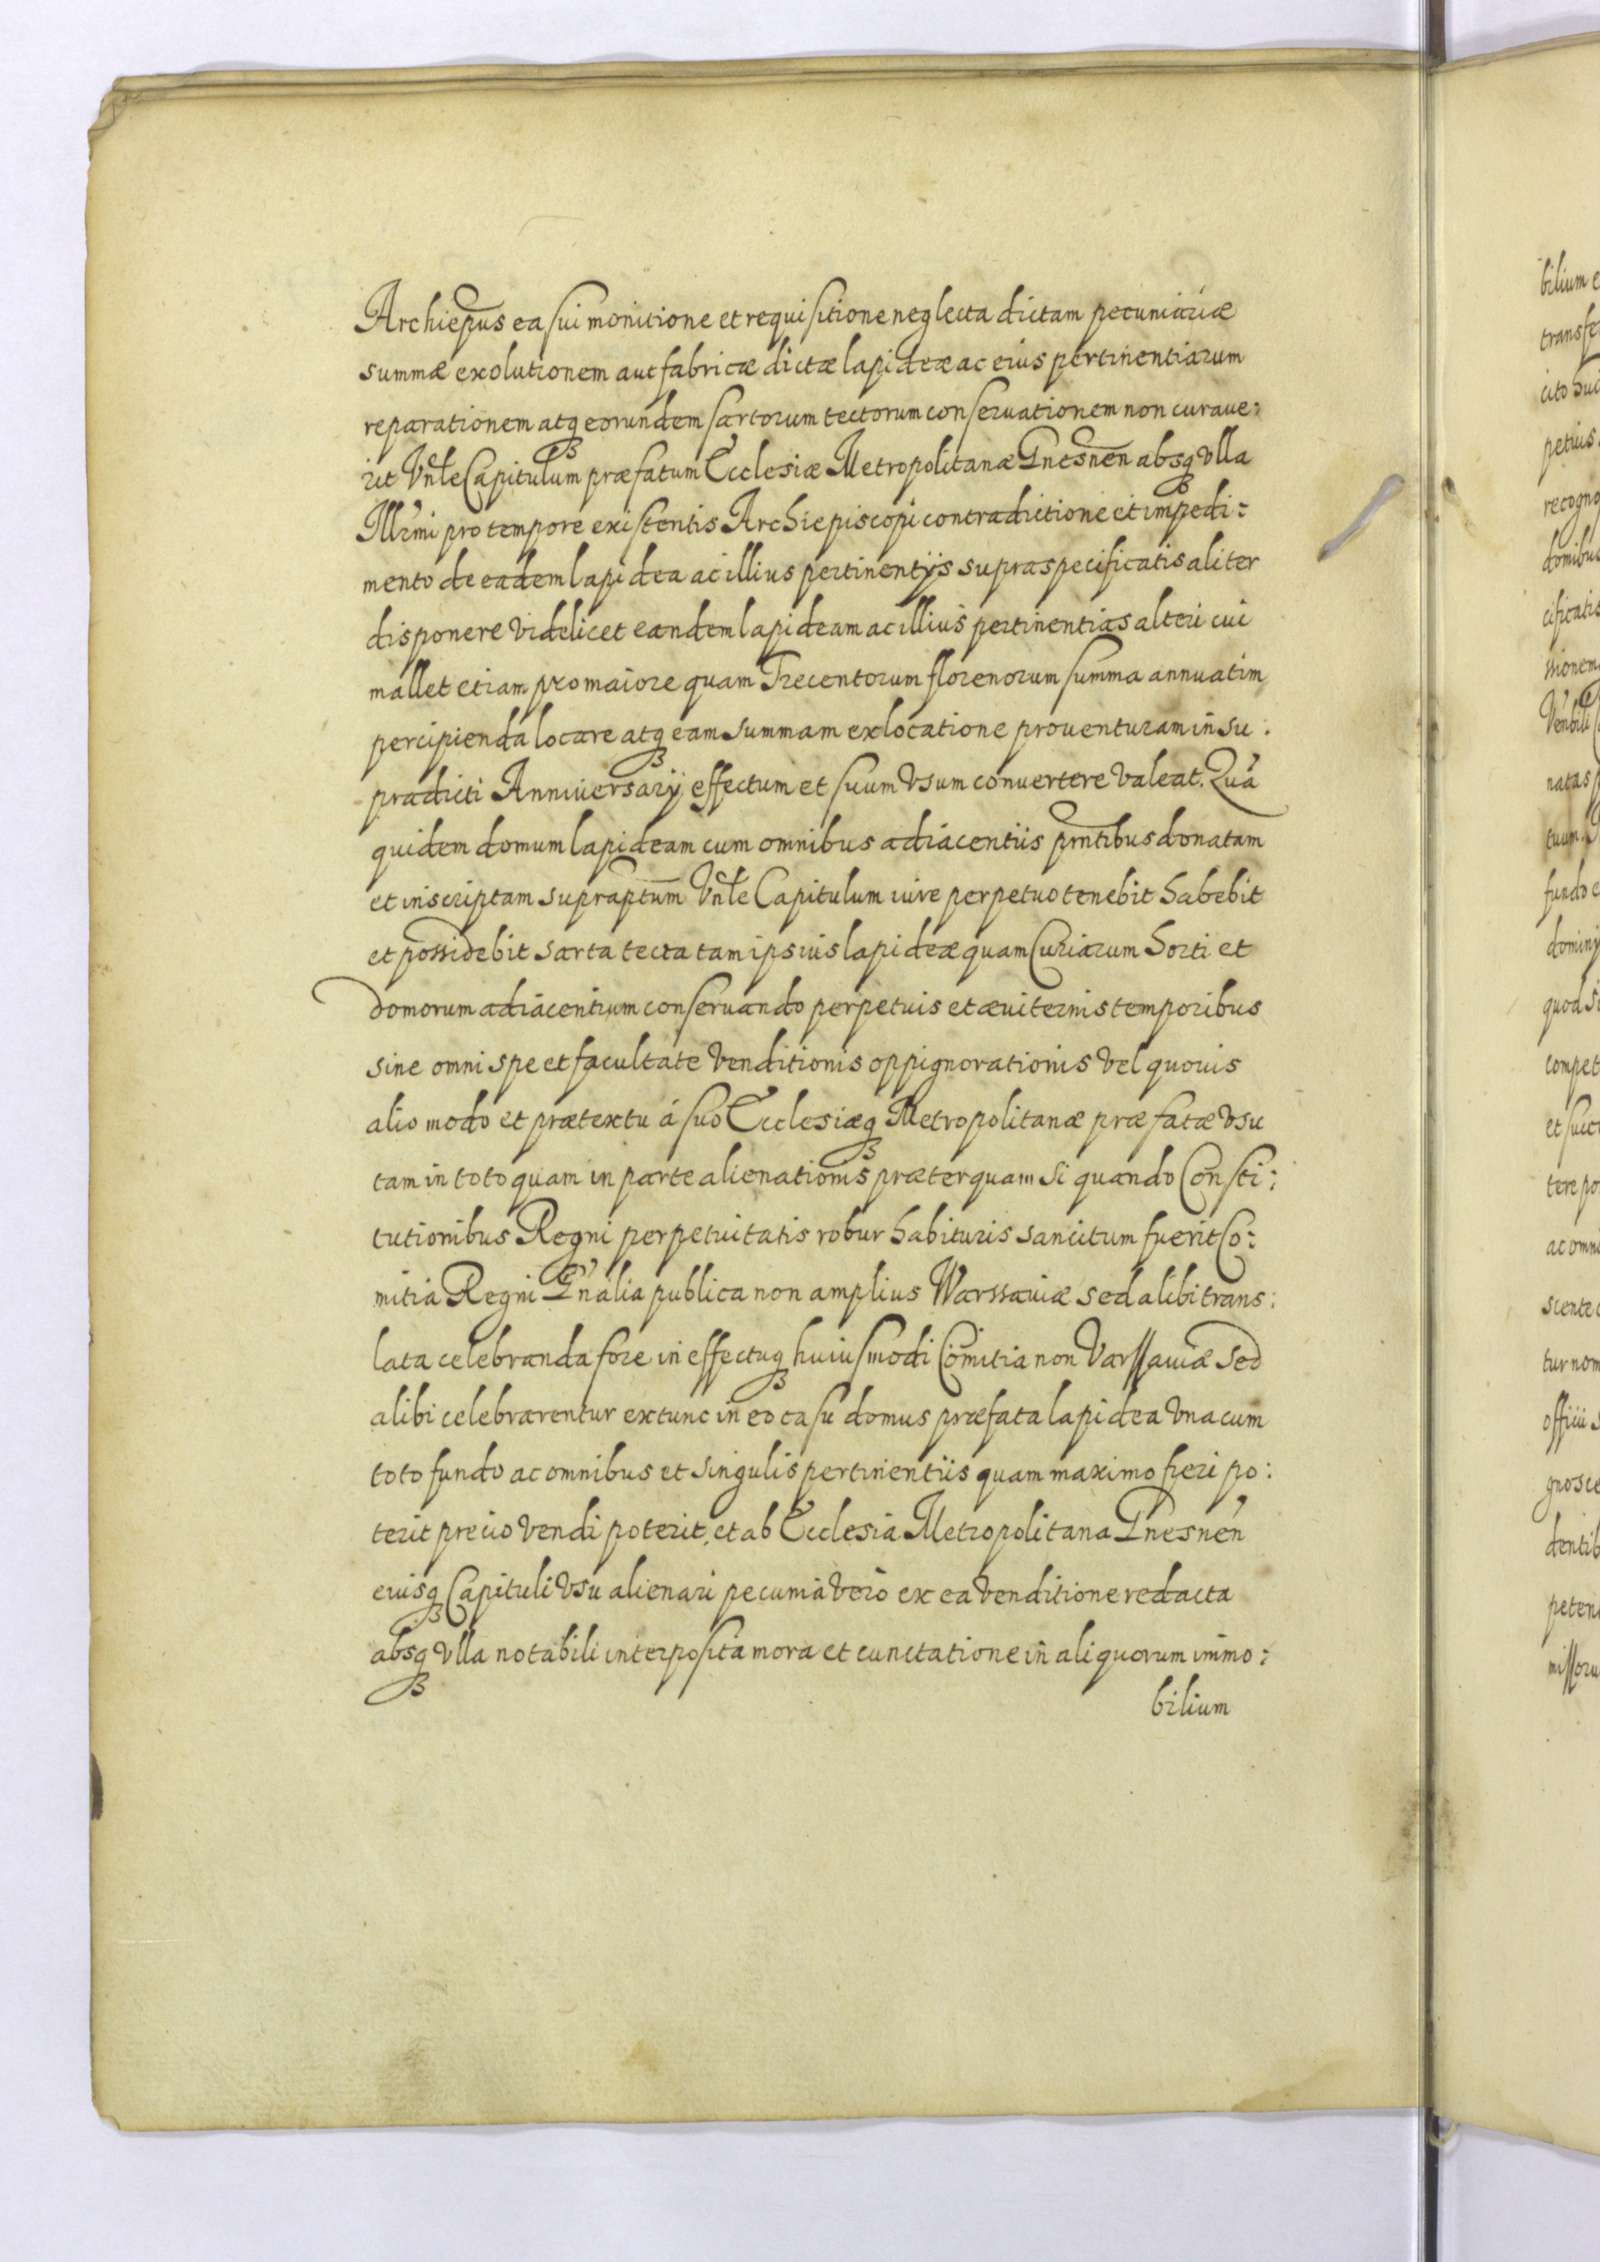 Archiepus ea sui monitione et requisitione neglecta dictam pecuniariæ
summæ exolutionem aut fabricæ dictæ lapideæ ac eius pertinentiarum
reparationem atq eorundem sartorum tectorum conservationem non curaue:
rit Vnle Capitulum præfatum Ecclesiæ Metropolitanæ Gnesnen absq vlla
Illrmi pro tempore existentis Archiepiscopi contradictione et impedi:
mento de eadem lapidea ac illius pertinentijs supraspecificatis aliter
disponere videlicet eandem lapideam ac illius pertinentias alteri cui
mallet etiam pro maiore quam Trecentorum florenorum summa annuatim
percipienda locare atq eam summam ex locatione prouenturam in su:
pradicti Anniuersarij effectum et suum vsum conuertere valeat. Quá
quidem domum lapideam cum omnibus adiacentiis pntibus donatam
et inscriptam supraptum Vnle Capitulum iure perpetuo tenebit habebit
et possidebit sarta tecta tam ipsius lapideæ quam Curiarum horti et
domorum adiacentium conseruando perpetuis et æuiternis temporibus
sine omni spe et facultate venditionis oppignorationis vel quouis
alio modo et prætextu á suo Ecclesiæq Metropolitanæ præfatæ vsu
tam in toto quam in parte alienationis præterquam si quando Consti:
tutionibus Regni perpetuitatis robur habituris sancitum fuerit Co:
mitia Regni Gnalia publica non amplius Warssauiæ sed alibi trans:
lata celebranda fore in effectuq huiusmodi Comitia non Varssauiæ sed
alibi celebrarentur extunc in eo casu domus præfata lapidea vna cum
toto fundo ac omnibus et singulis pertinentiis quam maximo fieri po:
terit precio vendi poterit, et ab Ecclesia Metropolitana Gnesnen
eiusq Capituli vsu alienari pecunia vero ex ea venditione redacta
absq vlla notabili interposita mora et cunctatione in aliquorum immo:
bilium